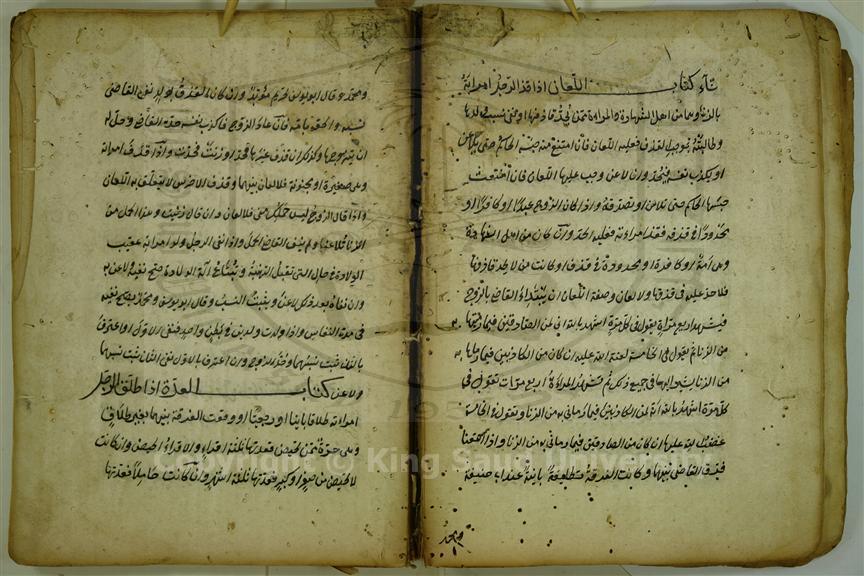 كتاب اللعان اذا قذف الرجل امراته
بالزنا وهما من اهل الشهادة والمراة ممن يحد قاذفها او نفى نسب ولدها
وطالبته بموجب القذف فعليه اللعان فان امتنع منه حبسه الحاكم حتى يلاعن
او يكذب نفسه فيحد وان لاعن وجب عليها اللعان فان امتنعت
حبسها الحاكم حتى تلاعن او تصدقه واذا كان الزوج عبدا او كافرا او
محدودا في قذف فقذف امراته فعليه الحد وان كان من اهل الشهادة
وهي امة او كافرة او محدودة في قذف او كانت ممن لا يحد قاذفها
فلا حد عليه في قذفها ولا لعان وصفة اللعان ان يبتداء القاضي بالزوج
فيشهد اربع مرات يقول في كل مرة اشهد بالله اني لمن الصادقين فيما رميتها به
من الزنا ثم يقول في الخامسة لعنة الله عليه ان كان من الكاذبين فيما رماها به
من الزنا يشير اليها في جميع ذلك ثم تشهد المراة اربع مرات تقول في
كل مرة اشهد بالله انه لمن الكاذبين فيما رماني به من الزنا وتقول في الخامسة
غضب الله عليها ان كان من الصادقين فيما رماني به من الزنا واذا التعنا
فرق القاضي بينهما وكانت الفرقة تطليقة باينة عند ابي حنيفة
ومحمد
ومحمد وقال ابو يوسف تحريم مؤبد وان كان القذف بولد نفى القاضي
نسبه والحقه بامه فان عاد الزوج فاكذب نفسه حده القاضي وحل له
ان يتزوجها وكذلك ان قذف غيرها فحد او زنت فحدت واذا قذف امراته
وهي صغيرة او مجنونة فلا لعان بينهما وقذف الاخرس لا يتعلق به اللعان
واذا قال الزوج ليس حملك مني فلا لعان وان قال زنيت وهذا الحمل من
الزنا تلاعنا ولم ينف القاضي الحمل واذا نفى الرجل ولد امراته عقيب
الولادة في حال التي تقبل التهنية وتبتاع له آلة الولادة صح نفيه ولاعن به
وان نفاه بعد ذلك لاعن ويثبت النسب وقال ابو يوسف ومحمد يصح نفيه
في مدة النفاس واذا ولدت ولدين في بطن واحد فنفى الاول واعترف
بالثاني ثبت نسبهما وحد الزوج وان اعترف بالاول ونفى الثاني ثبت نسبهما
ولاعن كتاب العدة اذا طلق الرجل
امراته طلاقا باينا او رجعيا او وقعت الفرقة بينهما بغير طلاق
وهي حرة ممن تحيض فعدتها ثلثة اقراء والاقراء الحيض وان كانت
لا تحيض من صغر او كبر فعدتها ثلثة اشهر وان كانت حاملا فعدتها
© King Saud University